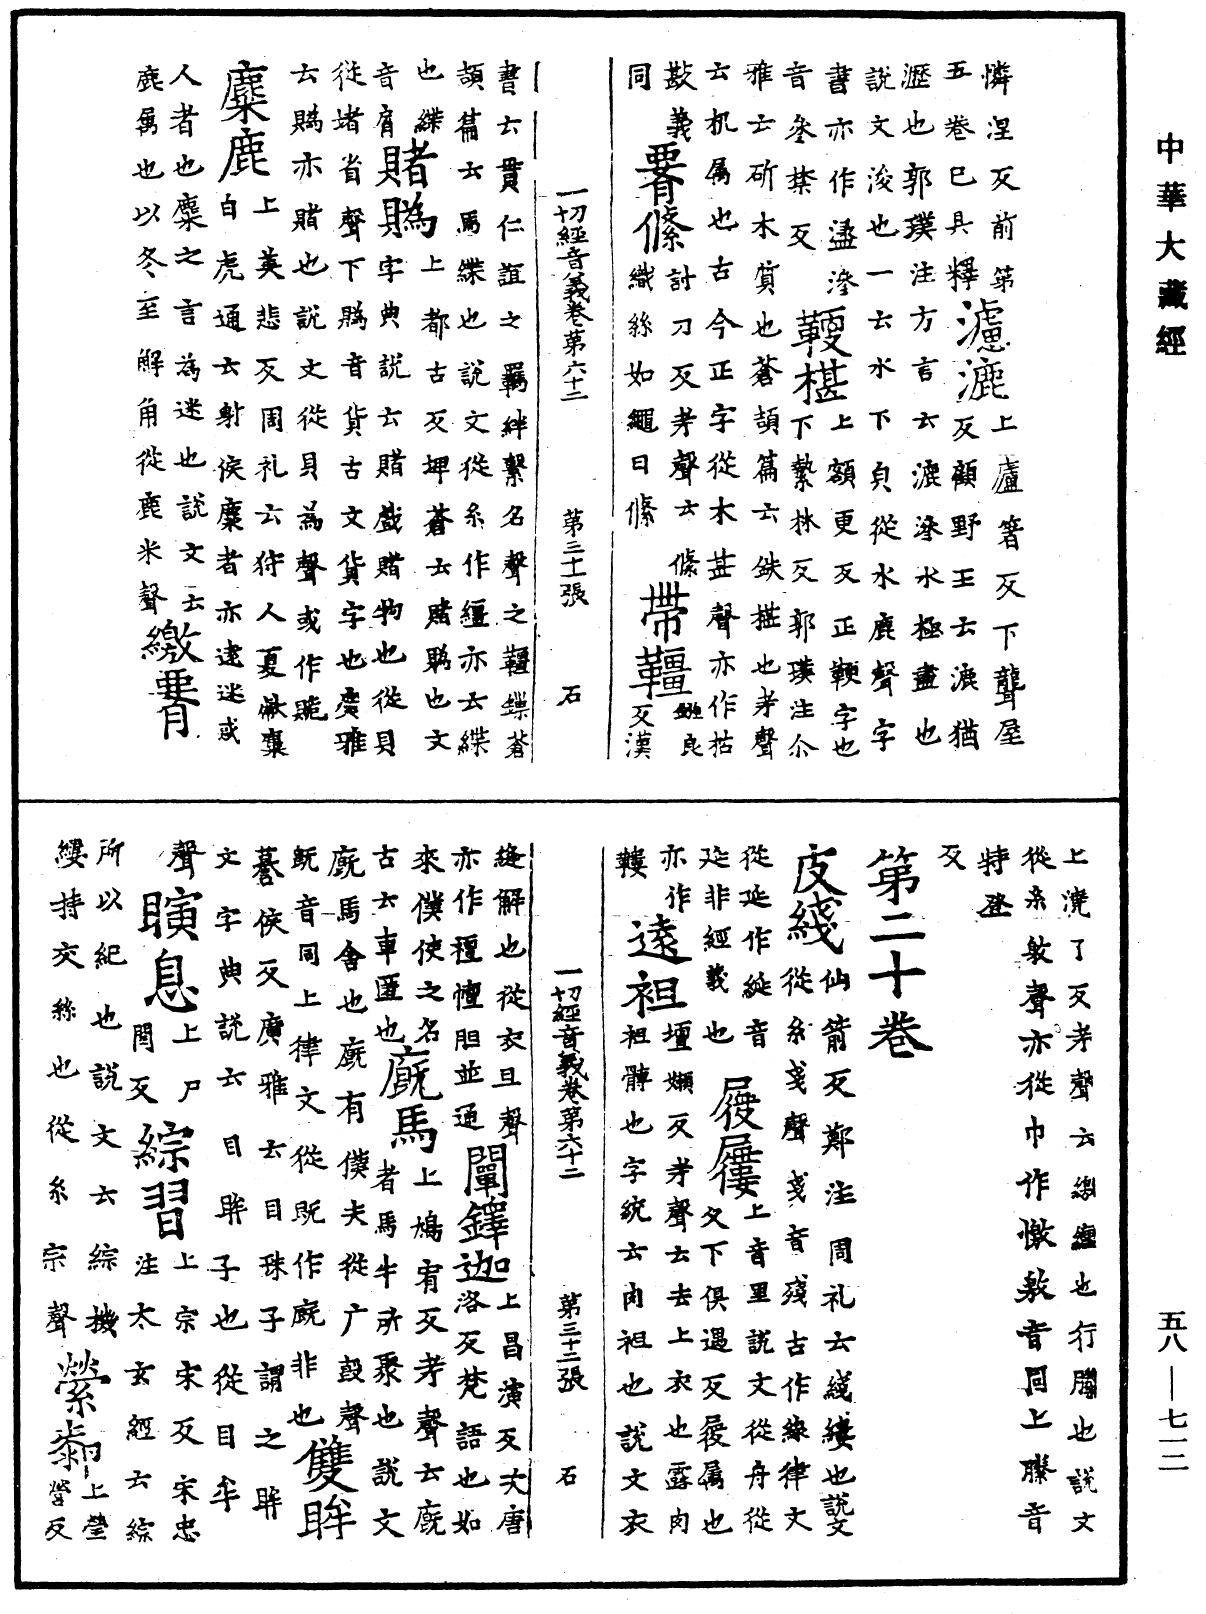 中華大藏經
憐涅反前第
五卷已具釋
濾漉
上廬箸反下聾屋
反顧野王云漉猶
瀝也郭璞注方言云漉滲水極盡也
說文浚也一云水下皃從水鹿聲字
書亦作盝滲
音參禁反
鞕椹
上額更反正鞕字也
下縶林反郭璞注尒
雅云斫木質也蒼頡篇云鈇椹也考聲
云机屬也古今正字從木甚聲亦作枮
㪣義
同
䙅絛
討刀反考聲云絛
織絲如繩曰絛
帶韁
良
反漢
一切經音義卷第六十二 第三十一張 石
書云貫仁誼之羈絆繫名聲之韁鏁蒼
頡篇云馬緤也說文從糸作繮亦云緤
也緤
音
賭賜
上都古反埤蒼云賭賜也文
字典說云賭戲賭物也從貝
從堵省聲下賜音貨古文貨字也廣雅
云賜亦賭也說文從貝為聲或作貤
麋鹿
上美悲反周礼云狩人夏獻麋
白虎通云射侯麋者亦逮迷惑
人者也麋之言為迷也說文云
鹿屬也以冬至解角從鹿米聲
繳䙅
上澆了反考聲云繳纏也行縢也說文
從糸敫聲亦從巾作憿敫音同上縢音
特登
反
第二十卷
皮綫
仙箭反鄭注周礼云綫縷也說文
從糸戔聲戔音殘古作線律文
從延作綖音
延非經義也
屐屨
上音里說文從舟從
夂下俱遇反屐屬也
亦作
䩫
遠袒
壇嬾反考聲云去上衣也露肉
袒髆也字統云肉袒也說文衣
一切經音義卷第六十二 第三十二張 石
縫解也從衣旦聲
亦作襢膻胆並通
闡鐸迦
上昌演反次唐
洛反梵語也如
來僕使之名
古云車匿也
廄馬
上鳩宥反考聲云廄
者馬牛所聚也說文
廄馬舍也廄有僕夫從广㱿聲
旣音同上律文從旣作廐非也
雙眸
暮侯反廣雅云目珠子謂之眸
文字典說云目眸子也從目牟
聲
瞚息
上尸
閏反
綜習
上宗宋反宋忠
注太玄經云綜
所以紀也說文云綜機
縷持交絲也從糸宗聲
縈
上瑩
反
五八—七一二